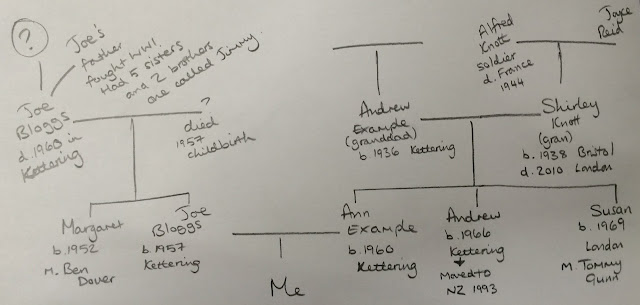 ?
Joe's
father
fought WW1.
Had 5 sisters
and 2 brothers
one called Jimmy.
Alfred
Knott
soldier
d. France
1944
Joyce
Reid
Joe
Bloggs
d. 1960 in
Kettering
?
died
1957
childbirth
Andrew
Example
(granddad)
b 1936 Kettering
Shirley
Knott
(gran)
b. 1938 Bristol
d. 2010 London
Margaret
b. 1952
m. Ben
Dover
Joe
Bloggs
b. 1957
Kettering
Ann
Example
b. 1960
Kettering
Andrew
b. 1966
Kettering
Moved to
NZ 1993
Susan
b. 1969
London
M. Tommy
Gunn
Me